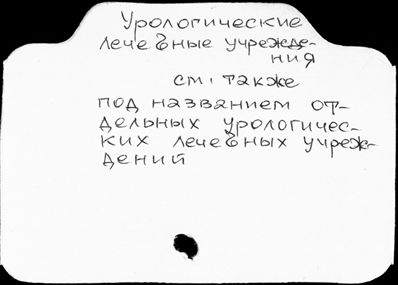 Урологические
лечебные учрежде-
ния
см. также
под названием от-
дельных урологичес-
ких лечебных учреж-
дений